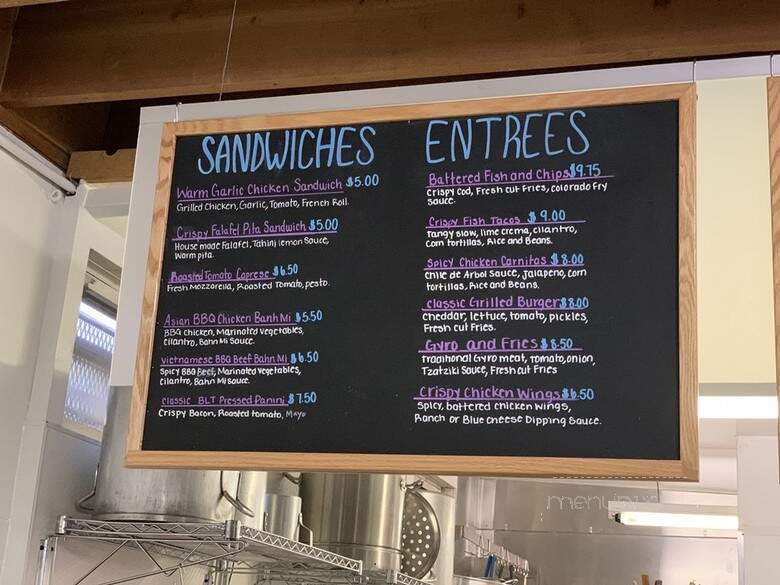 SANDWICHES
Warm Garlic Chicken Sandwich $5.00
Grilled Chicken, Garlic, Tomato, French Roll.
Crispy Falafel Pita Sandwich $5.00
House made Falafel, Tahini lemon Sauce,
Warm pita.
Roasted Tomato Caprese $6.50
Fresh Mozzarella, Roasted Tomato, pesto.
Asian BBQ Chicken Banh Mi $5.50
BBQ chicken, Marinated vegetables,
cilantro, Bahn Mi Sauce.
Vietnamese BBQ Beef Bahn Mi $6.50
Spicy BBQ Beef, Marinated vegetables,
cilantro, Bahn Mi sauce.
classic BLT Pressed Panini $7.50
Crispy Bacon, Roasted tomato, Mayo
ENTREES
Battered Fish and Chips $9.75
Crispy Cod, Fresh cut Fries, Colorado Fry
Sauce.
Crispy Fish Tacos $9.00
Tangy slaw, lime crema, cilantro,
Corn tortillas, Rice and Beans.
Spicy Chicken Carnitas $8.00
Chile de Arbol Sauce, jalapeno, corn
tortillas, Rice and Beans.
classic Grilled Burger $8.00
Cheddar, lettuce, tomato, pickles,
Fresh cut Fries.
Gyro and Fries $8.50
Traditional Gyro meat, tomato, onion,
Tzatziki Sauce, Fresh cut Fries
Crispy Chicken Wings $6.50
Spicy, battered chicken wings,
Ranch or Blue cheese Dipping Sauce.